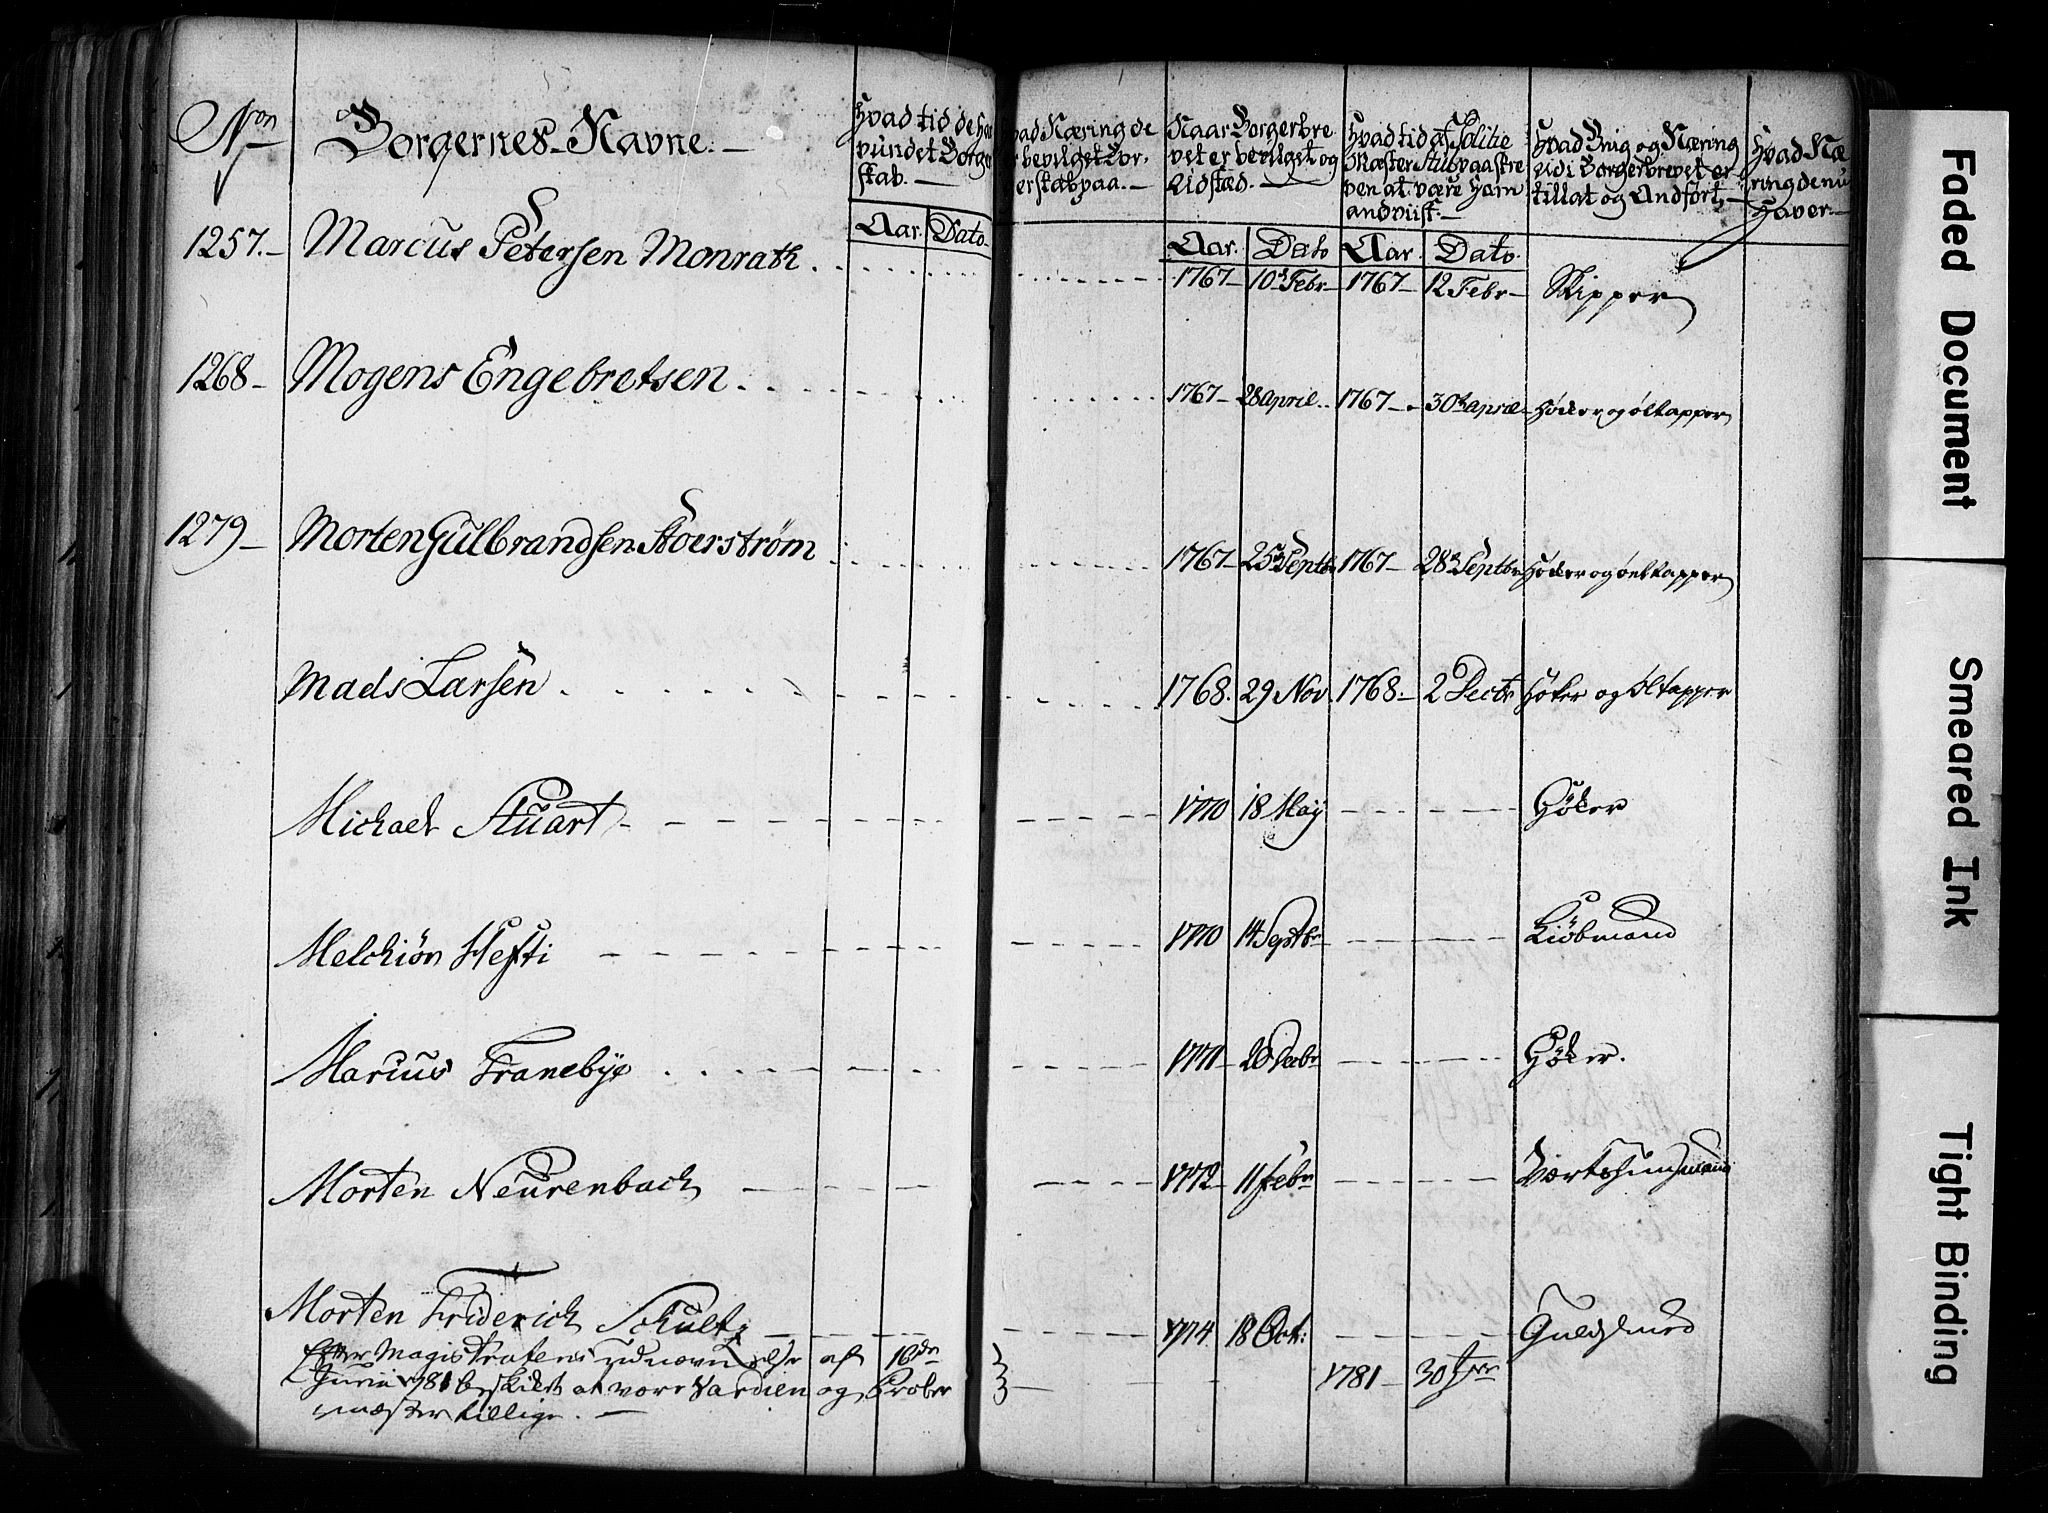 Non
Borgernes Navne.
Hvad tid de har
vundet Borger
skab.
Aar. Dato.
Hvad Næring de
er bevilget Bor-
gerskab paa.
Naar Borgerbre
vet er bevilget og
Udsted.
Aar. Dato
Hvad tid af Politie
Mæster Stubvaaskre
ven at være Ham
andviist.
Aar. Dato.
Hvad Brug og Næring
udi Borgerbrevet er
tillat og Andført
Hvad Næ
ring de nu
Haver
1257. Marcus Petersen Monrath 1767 10de Febr 1767 12 Febr Skipper
1268 Mogens Engebretsen 1767 28 april 1767 30te april Høker og øltapper
1279 Morten Gulbrandsen Stoerstrøm 1767 25de Septbr 1767 28de Septbr Høker og øeltapper
Mads Larsen 1768. 29 Nov. 1768. 2 Decbr Høker og Øltapper
Michael Stuart 1770 18 May Høker
Melchiör Hefti 1770 14 Septbr Kiöbmand
Marius Tranebye 1771 20 Decbr Høker.
Morten Neurenbach 1772 11 Febr Værtshuusmand
Morten Friderich Schultz 1774 18 Oct: Guldsmed
Efter Magistratens udnævnelse af 16de
Junii 1781 beskiket at være Vardien og Prober
mæster tillige. 1781 30
Faded Document
Smeared Ink
Tight Binding